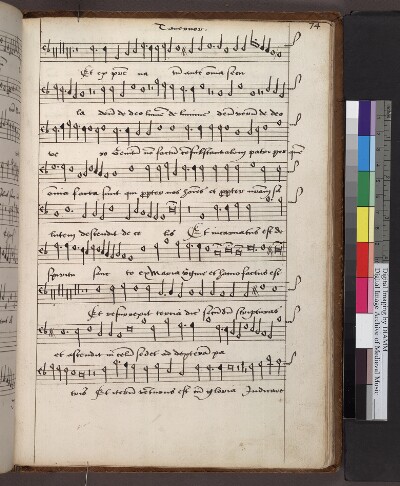 Tavernor.
74
Et ex pre na m ante omia secu
la deu de deo lumē de lumine deu veru de deo
ve ro Genitu no factu consubstantialem patri per que
omia facta sunt qui propter nos hoies et propter nram sa
lutem descendit de ce lis Et incarnatus est de
spiritu sanc to ex Maria virgine et homo factus est
Et resurrexit tercia die scdm scripturas
et ascendit in celu sedet ad dexteram pa
tris Et iteru venturus est cu gloria Judicare
Digital Imaging by DIAMM
Digital Image Archive of Medieval Music